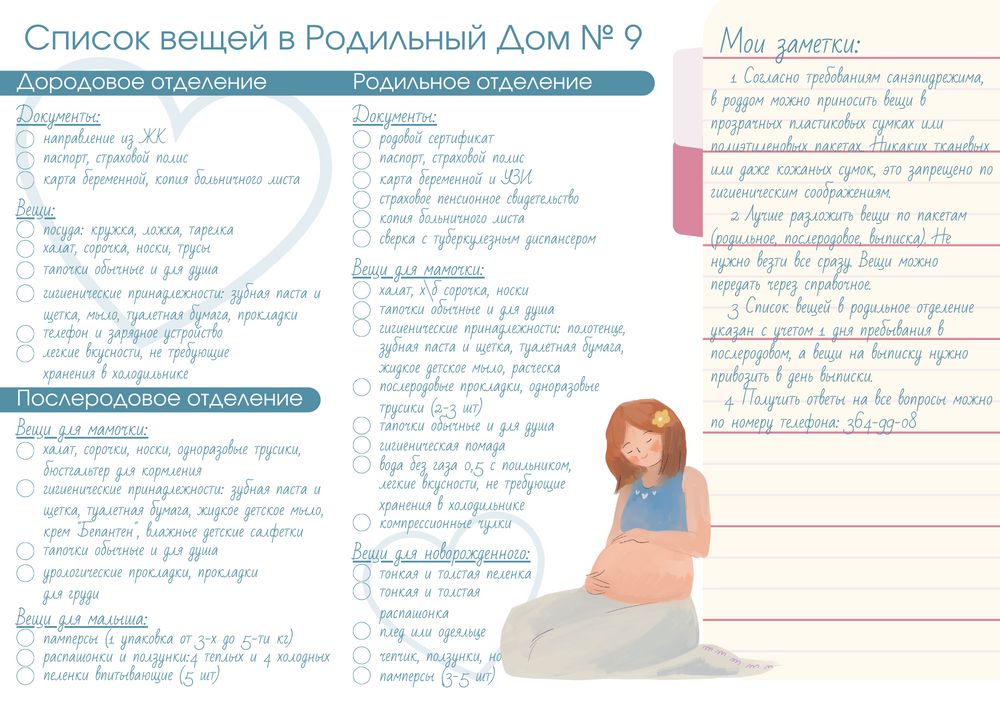 Список вещей в Родильный Дом № 9
Дородовое отделение
Документы:
направление из ЖК
паспорт, страховой полис
карта беременной, копия больничного листа
Вещи:
посуда: кружка, ложка, тарелка
халат, сорочка, носки, трусы
тапочки обычные и для душа
гигиенические принадлежности: зубная паста и
щетка, мыло, туалетная бумага, прокладки
телефон и зарядное устройство
легкие вкусности, не требующие
хранения в холодильнике
Послеродовое отделение
Вещи для мамочки:
халат, сорочки, носки, одноразовые трусики,
бюстгальтер для кормления
гигиенические принадлежности: зубная паста и
щетка, туалетная бумага, жидкое детское мыло,
крем "Бепантен", влажные детские салфетки
тапочки обычные и для душа
урологические прокладки, прокладки
для груди
Вещи для малыша:
памперсы (1 упаковка от 3-х до 5-ти кг)
распашонки и ползунки:4 теплых и 4 холодных
пеленки впитывающие (5 шт)
Родильное отделение
Документы:
родовой сертификат
паспорт, страховой полис
карта беременной и УЗИ
страховое пенсионное свидетельство
копия больничного листа
сверка с туберкулезным диспансером
Вещи для мамочки:
халат, х\б сорочка, носки
тапочки обычные и для душа
гигиенические принадлежности: полотенце,
зубная паста и щетка, туалетная бумага,
жидкое детское мыло, расческа
послеродовые прокладки, одноразовые
трусики (2-3 шт)
тапочки обычные и для душа
гигиеническая помада
вода без газа 0,5 с поильником,
легкие вкусности, не требующие
хранения в холодильнике
компрессионные чулки
Вещи для новорожденного:
тонкая и толстая пеленка
тонкая и толстая
распашонка
плед или одеяльце
чепчик, ползунки, но
памперсы (3-5 шт)
Мои заметки:
1 Согласно требованиям санэпидрежима,
в роддом можно приносить вещи в
прозрачных пластиковых сумках или
полиэтиленовых пакетах. Никаких тканевых
или даже кожаных сумок, это запрещено по
гигиеническим соображениям.
2 Лучше разложить вещи по пакетам
(родильное, послеродовое, выписка). Не
нужно везти все сразу. Вещи можно
передать через справочное.
3 Список вещей в родильное отделение
указан с учетом 1 дня пребывания в
послеродовом, а вещи на выписку нужно
привозить в день выписки.
4 Получить ответы на все вопросы можно
по номеру телефона: 364-99-08